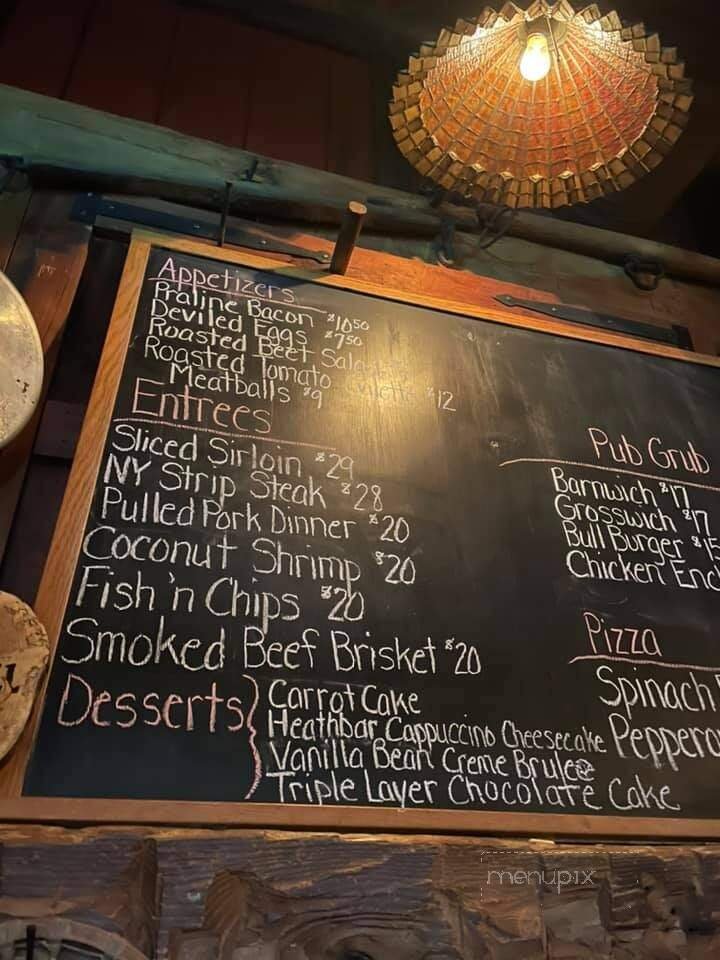 Appetizers
Praline Bacon $10.50
Deviled Eggs $7.50
Roasted Beet Salad
Roasted Tomato $12
Meatballs $9
Entrees
Sliced Sirloin $29
NY Strip Steak $28
Pulled Pork Dinner $20
Coconut Shrimp $20
Fish 'n Chips $20
Smoked Beef Brisket $20
Desserts
Carrot Cake
Heathbar Cappuccino Cheesecake
Vanilla Bean Creme Brulee
Triple Layer Chocolate Cake
Pub Grub
Barnwich $17
Grosswich $17
Bull Burger $15
Chicken
Pizza
Spinach
menupix